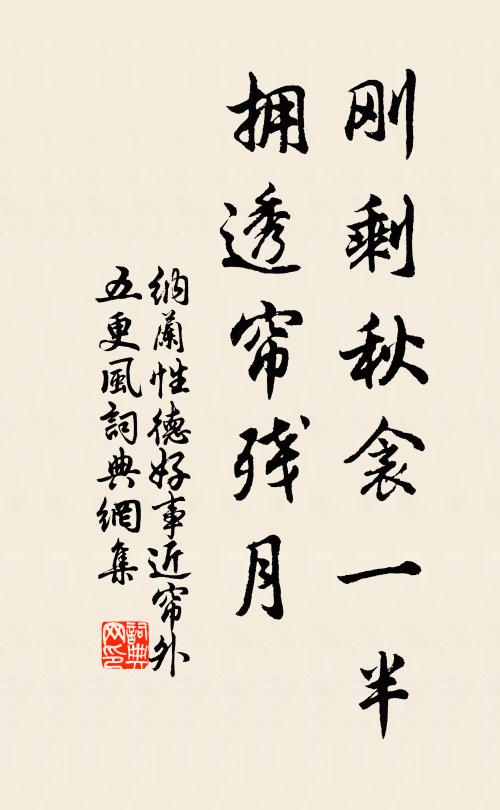 刚剩秋衾一半
拥透帘残月
纳蘭性德好事近帘外
五更風詞典網集
詞典
网印